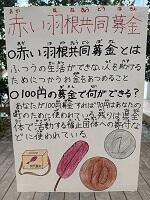 赤い羽根共同募金
○赤い羽根共同募金とは
ふつうの生活ができない人を助ける
ためにつかうお金をあつめること
○100円の募金で何ができる?
あなたが100円募金すれば70円はあなたの
のために使われている。残りは
体で活動する福祉団体への寄付な
どに使われている